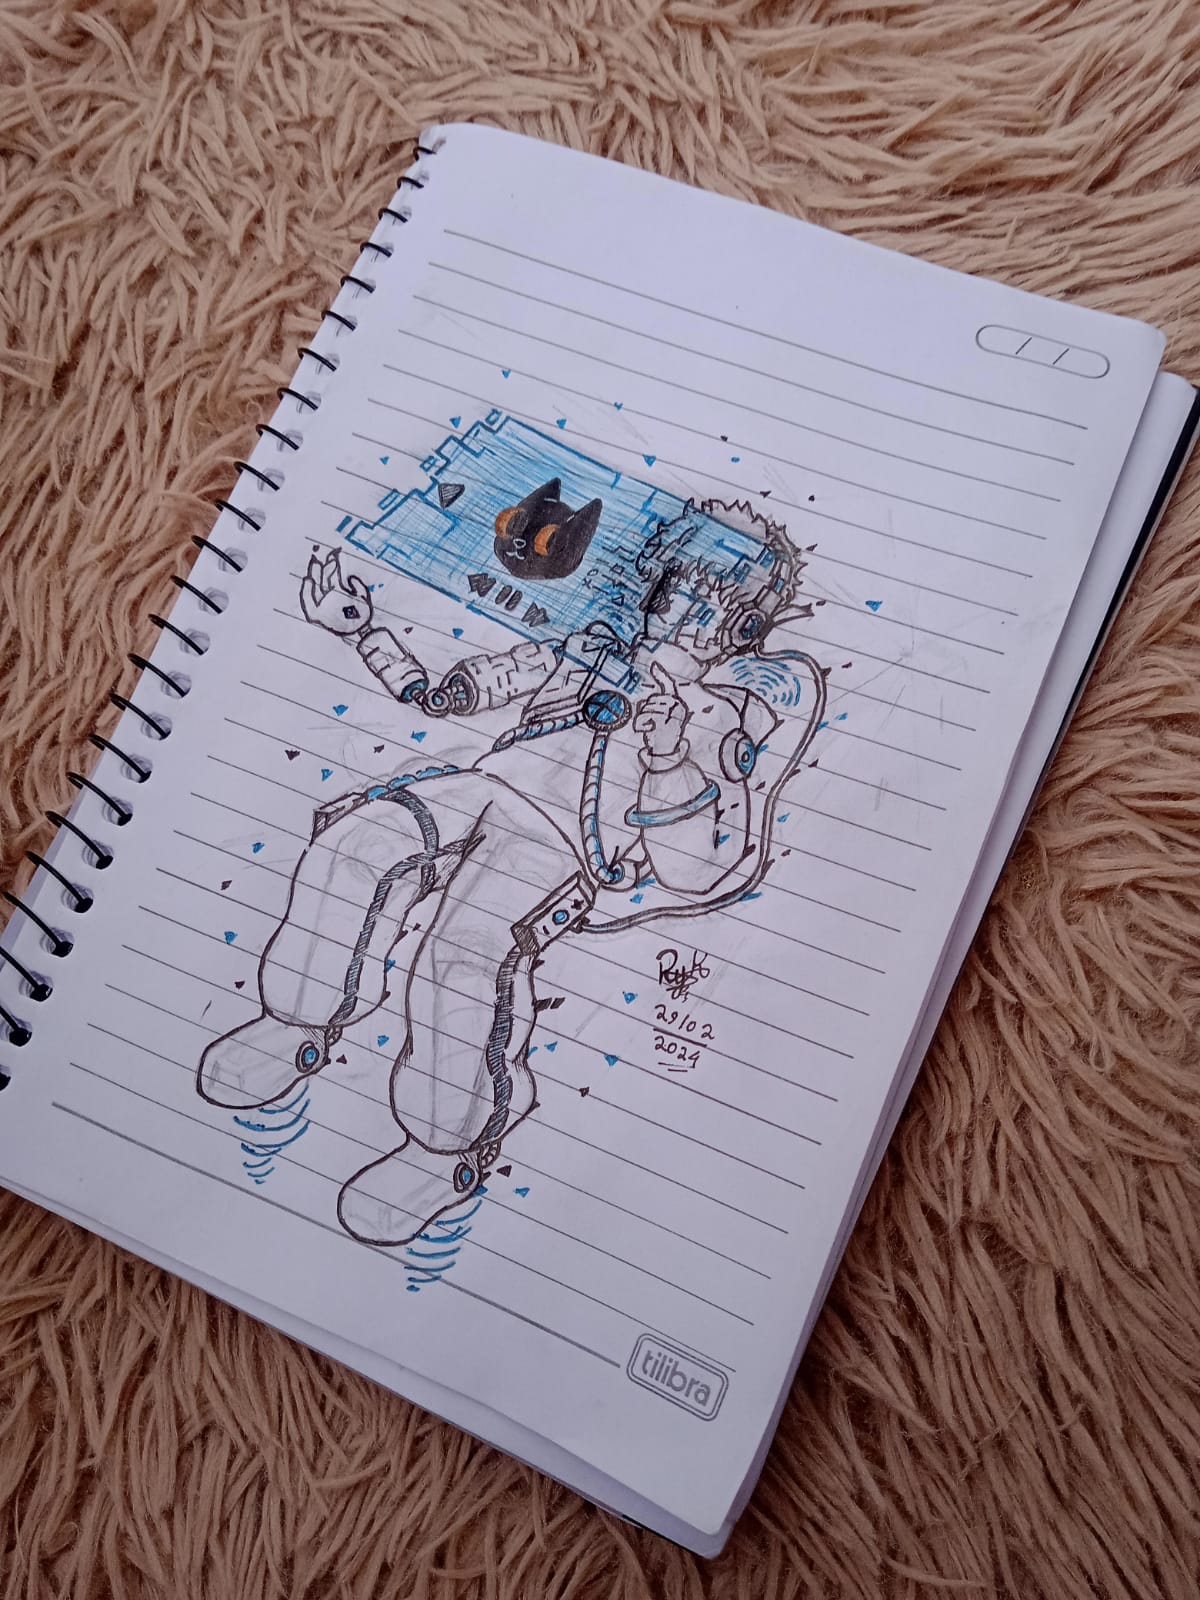 29/02
2024
tilibra